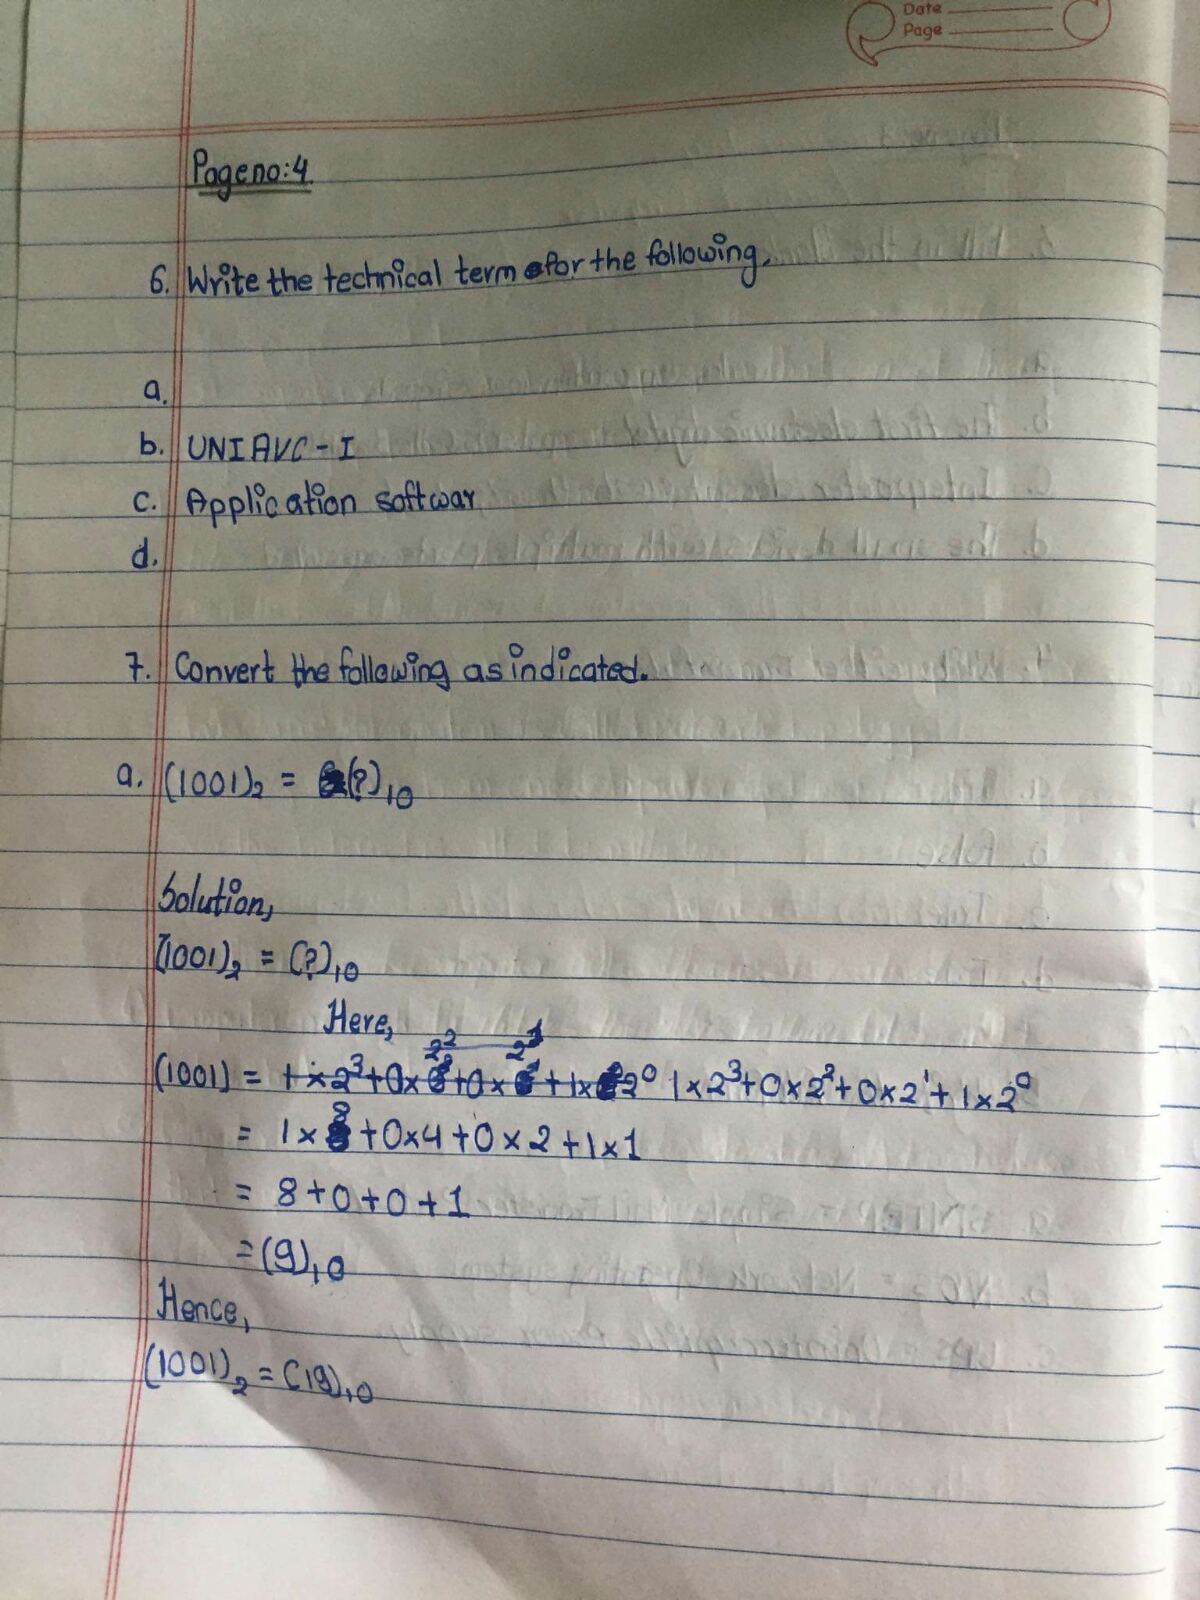 Date
Page
Page no:4
6. Write the technical term for the following.
a.
b. UNIAVC-I
c. Application softwar
d.
7. Convert the following as indicated.
a. (1001)₂ = (?)₁₀
Solution,
(1001)₂ = (?)₁₀
Here,
(1001) = 1×2³+0×2²+0×2¹+1×2⁰ 1×2³+0×2²+0×2¹+1×2⁰
= 1×8+0×4+0×2+1×1
= 8+0+0+1
=(9)₁₀
Hence,
(1001)₂ = (19)₁₀